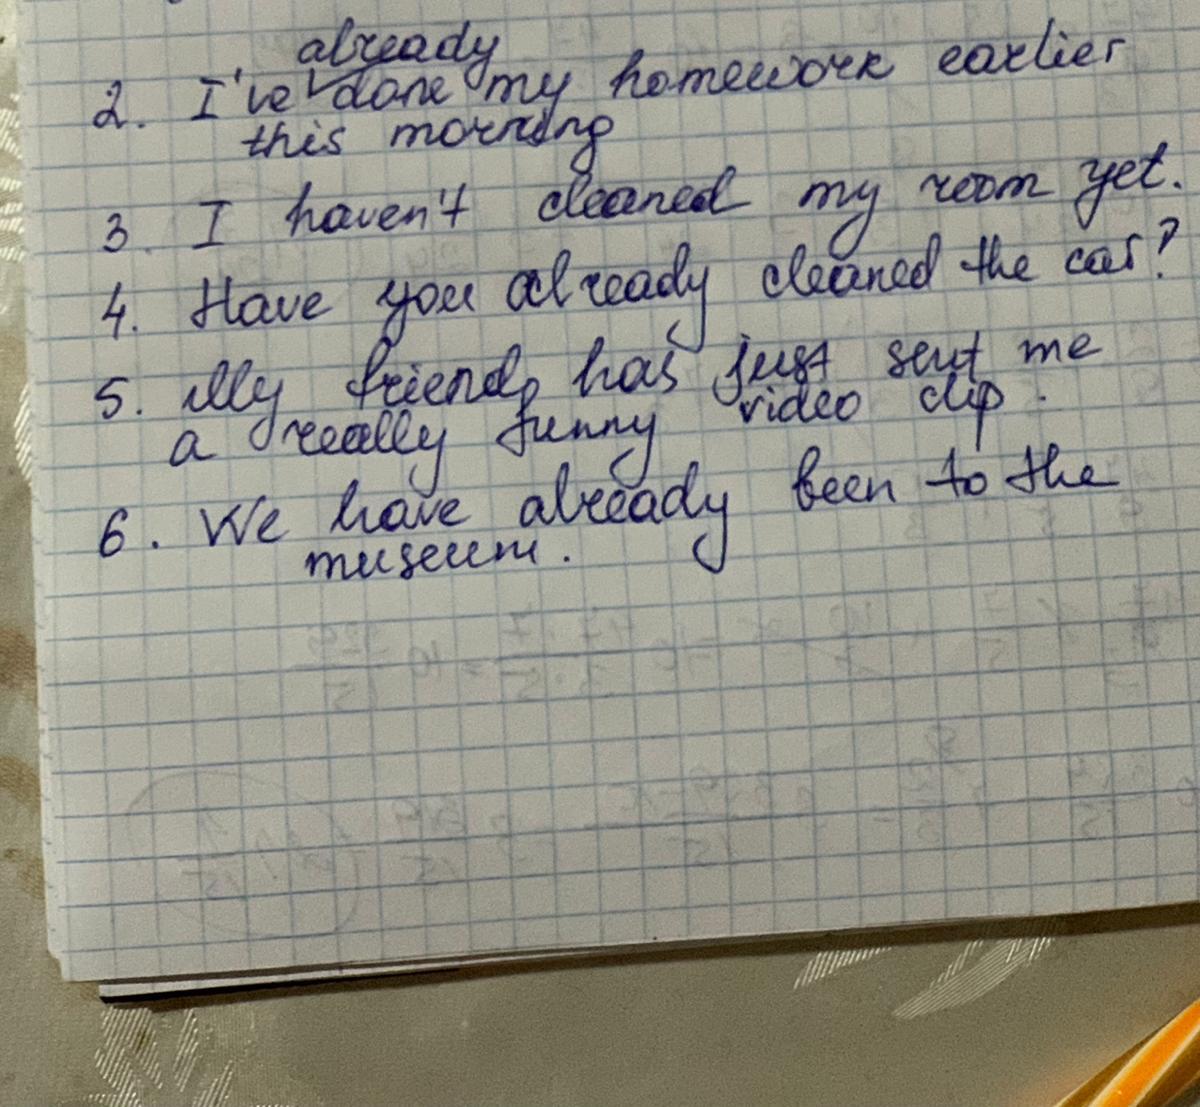 already
2. I've done my homework earlier
this morning
3. I haven't cleaned my room yet.
4. Have you already cleaned the car?
5. My friend has just sent me
a really funny video clip.
6. We have already been to the
museum.